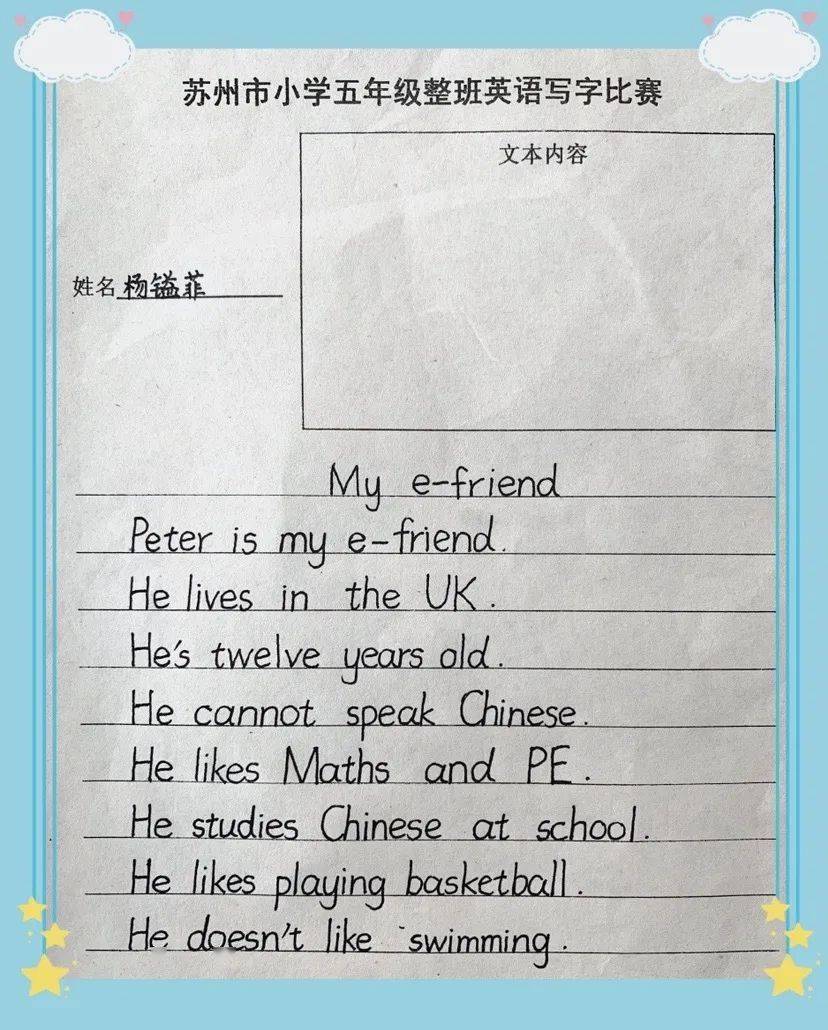 苏州市小学五年级整班英语写字比赛
文本内容
姓名 杨镒菲
My e-friend
Peter is my e-friend.
He lives in the UK.
He's twelve years old.
He cannot speak Chinese.
He likes Maths and PE.
He studies Chinese at school.
He likes playing basketball.
He doesn't like swimming.